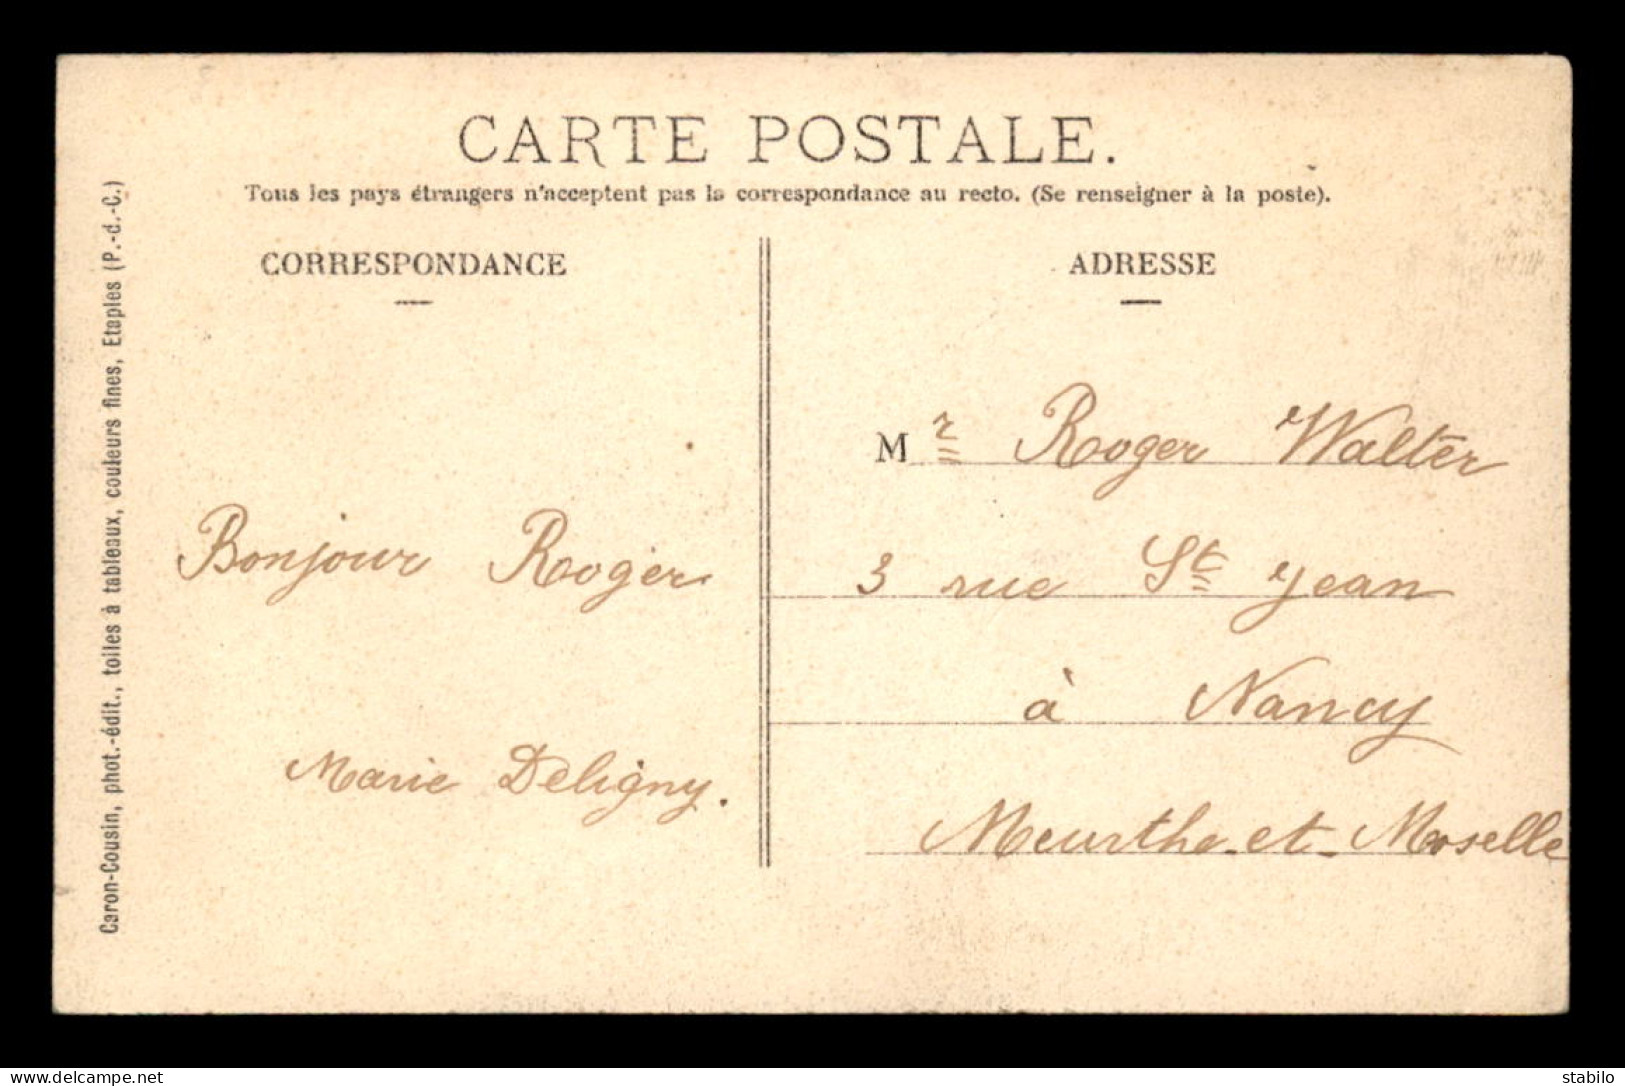 CARTE POSTALE.
Tous les pays étrangers n'acceptent pas la correspondance au recto. (Se renseigner à la poste).
CORRESPONDANCE
ADRESSE
Caron-Cousin, phot.-édit., toiles à tableaux, couleurs fines, Etaples (P.-d.-C.)
Bonjour Roger
Marie Deligny.
Mr Roger Walter
3 rue St Jean
à Nancy
Meurthe-et-Moselle
www.delcampe.net
stabilo